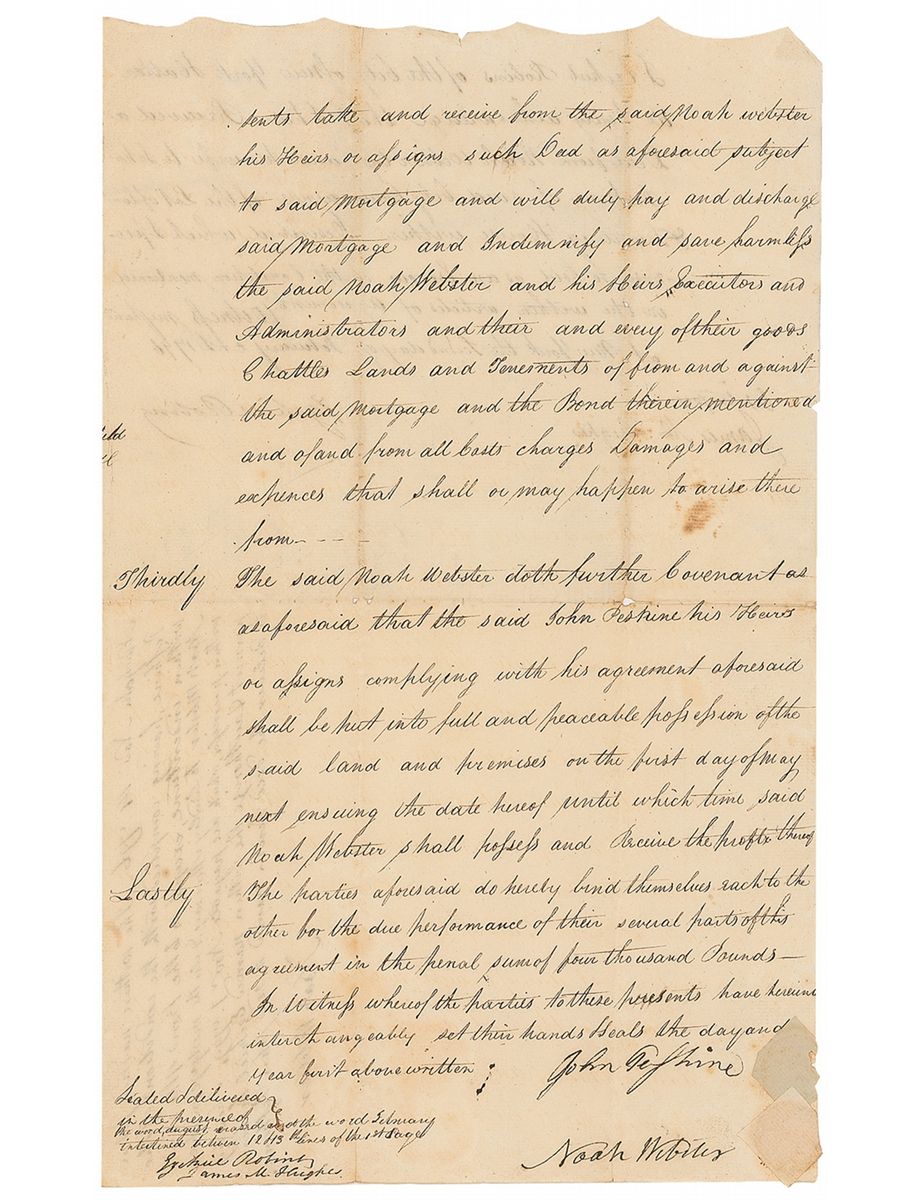 sents take and receive from the said Noah webster
his Heirs or assigns such Dad as aforesaid subject
to said Mortgage and will duly pay and discharge
said Mortgage and Indemnify and save harmless
the said Noah Webster and his Heirs, Executors and
Administrators and their and every of their goods
Chattles Lands and Tenements of from and against
the said Mortgage and the Bond therein mentioned
and of and from all Costs charges Damages and
expences that shall or may happen to arise there
from - - - -
Thirdly The said Noah Webster doth further Covenant as
as aforesaid that the said John Peskine his Heirs
or assigns complying with his agreement aforesaid
shall be put into full and peaceable possession of the
said land and premises on the first day of May
next ensuing the date hereof until which time said
Noah Webster shall possess and Receive the profits thereof
Lastly The parties aforesaid do hereby bind themselves each to the
other for the due performance of their several parts of this
agreement in the penal sum of four thousand Pounds —
In Witness whereof the parties to these presents have hereunu
interchangeably set their hands & seals the day and
year first above written
John Peshine
Sealed & delivered
in the presence of
the word august erased and the word February
interlined between 12 & 13th lines of the 1st Page
Noah Webster
Ezekiel Robins
James M. Hughes